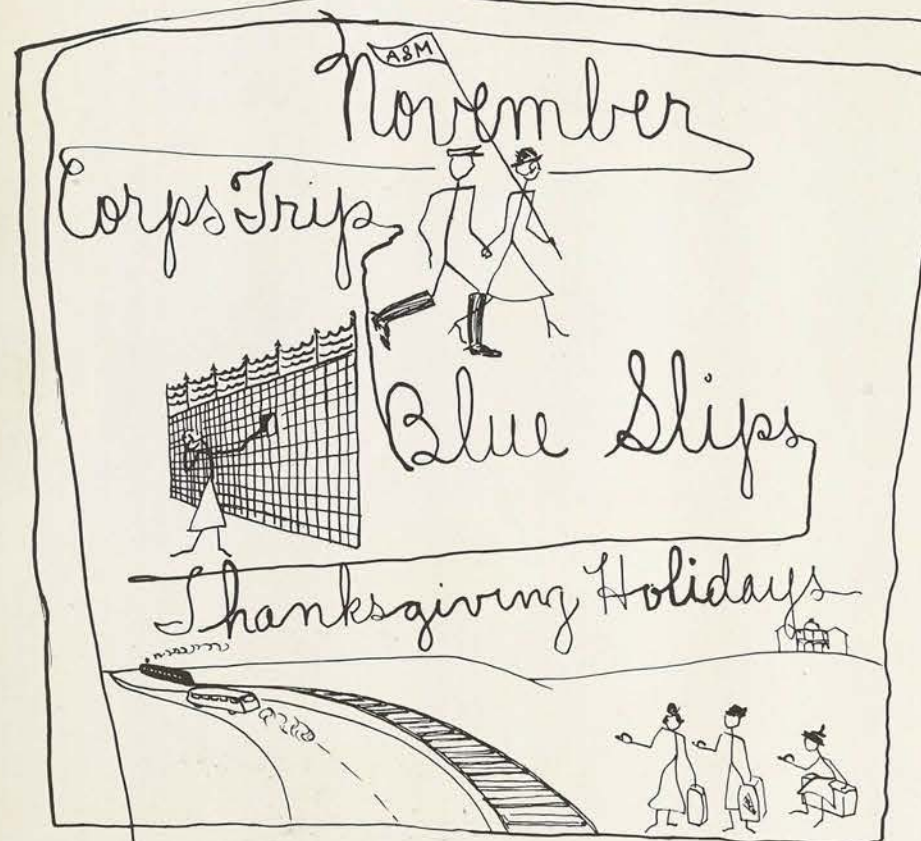 A&M
November
Corps Trip
Blue Slips
Thanksgiving Holidays